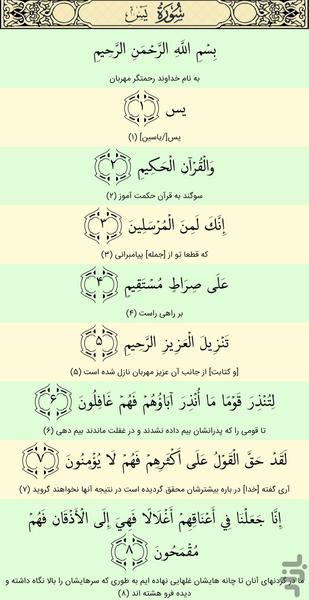 سُورَةُ يٰسٓ
بِسْمِ اللَّهِ الرَّحْمَنِ الرَّحِيمِ
به نام خداوند رحمتگر مهربان
يس ﴿۱﴾
یس[/یاسین] (۱)
وَالْقُرْآنِ الْحَكِيمِ ﴿۲﴾
سوگند به قرآن حکمت آموز (۲)
إِنَّكَ لَمِنَ الْمُرْسَلِينَ ﴿۳﴾
که قطعا تو از [جمله] پیامبرانی (۳)
عَلَى صِرَاطٍ مُسْتَقِيمٍ ﴿۴﴾
بر راهی راست (۴)
تَنْزِيلَ الْعَزِيزِ الرَّحِيمِ ﴿۵﴾
[و کتابت] از جانب آن عزیز مهربان نازل شده است (۵)
لِتُنْذِرَ قَوْمًا مَا أُنْذِرَ آبَاؤُهُمْ فَهُمْ غَافِلُونَ ﴿۶﴾
تا قومی را که پدرانشان بیم داده نشدند و در غفلت ماندند بیم دهی (۶)
لَقَدْ حَقَّ الْقَوْلُ عَلَى أَكْثَرِهِمْ فَهُمْ لَا يُؤْمِنُونَ ﴿۷﴾
آری گفته [خدا] در باره بیشترشان محقق گردیده است در نتیجه آنها نخواهند گروید (۷)
إِنَّا جَعَلْنَا فِي أَعْنَاقِهِمْ أَغْلَالًا فَهِيَ إِلَى الْأَذْقَانِ فَهُمْ
مُقْمَحُونَ ﴿۸﴾
ما در گردنهای آنان تا چانه هایشان غلهایی نهاده ایم به طوری که سرهایشان را بالا نگاه داشته و
دیده فرو هشته اند (۸)
بازار